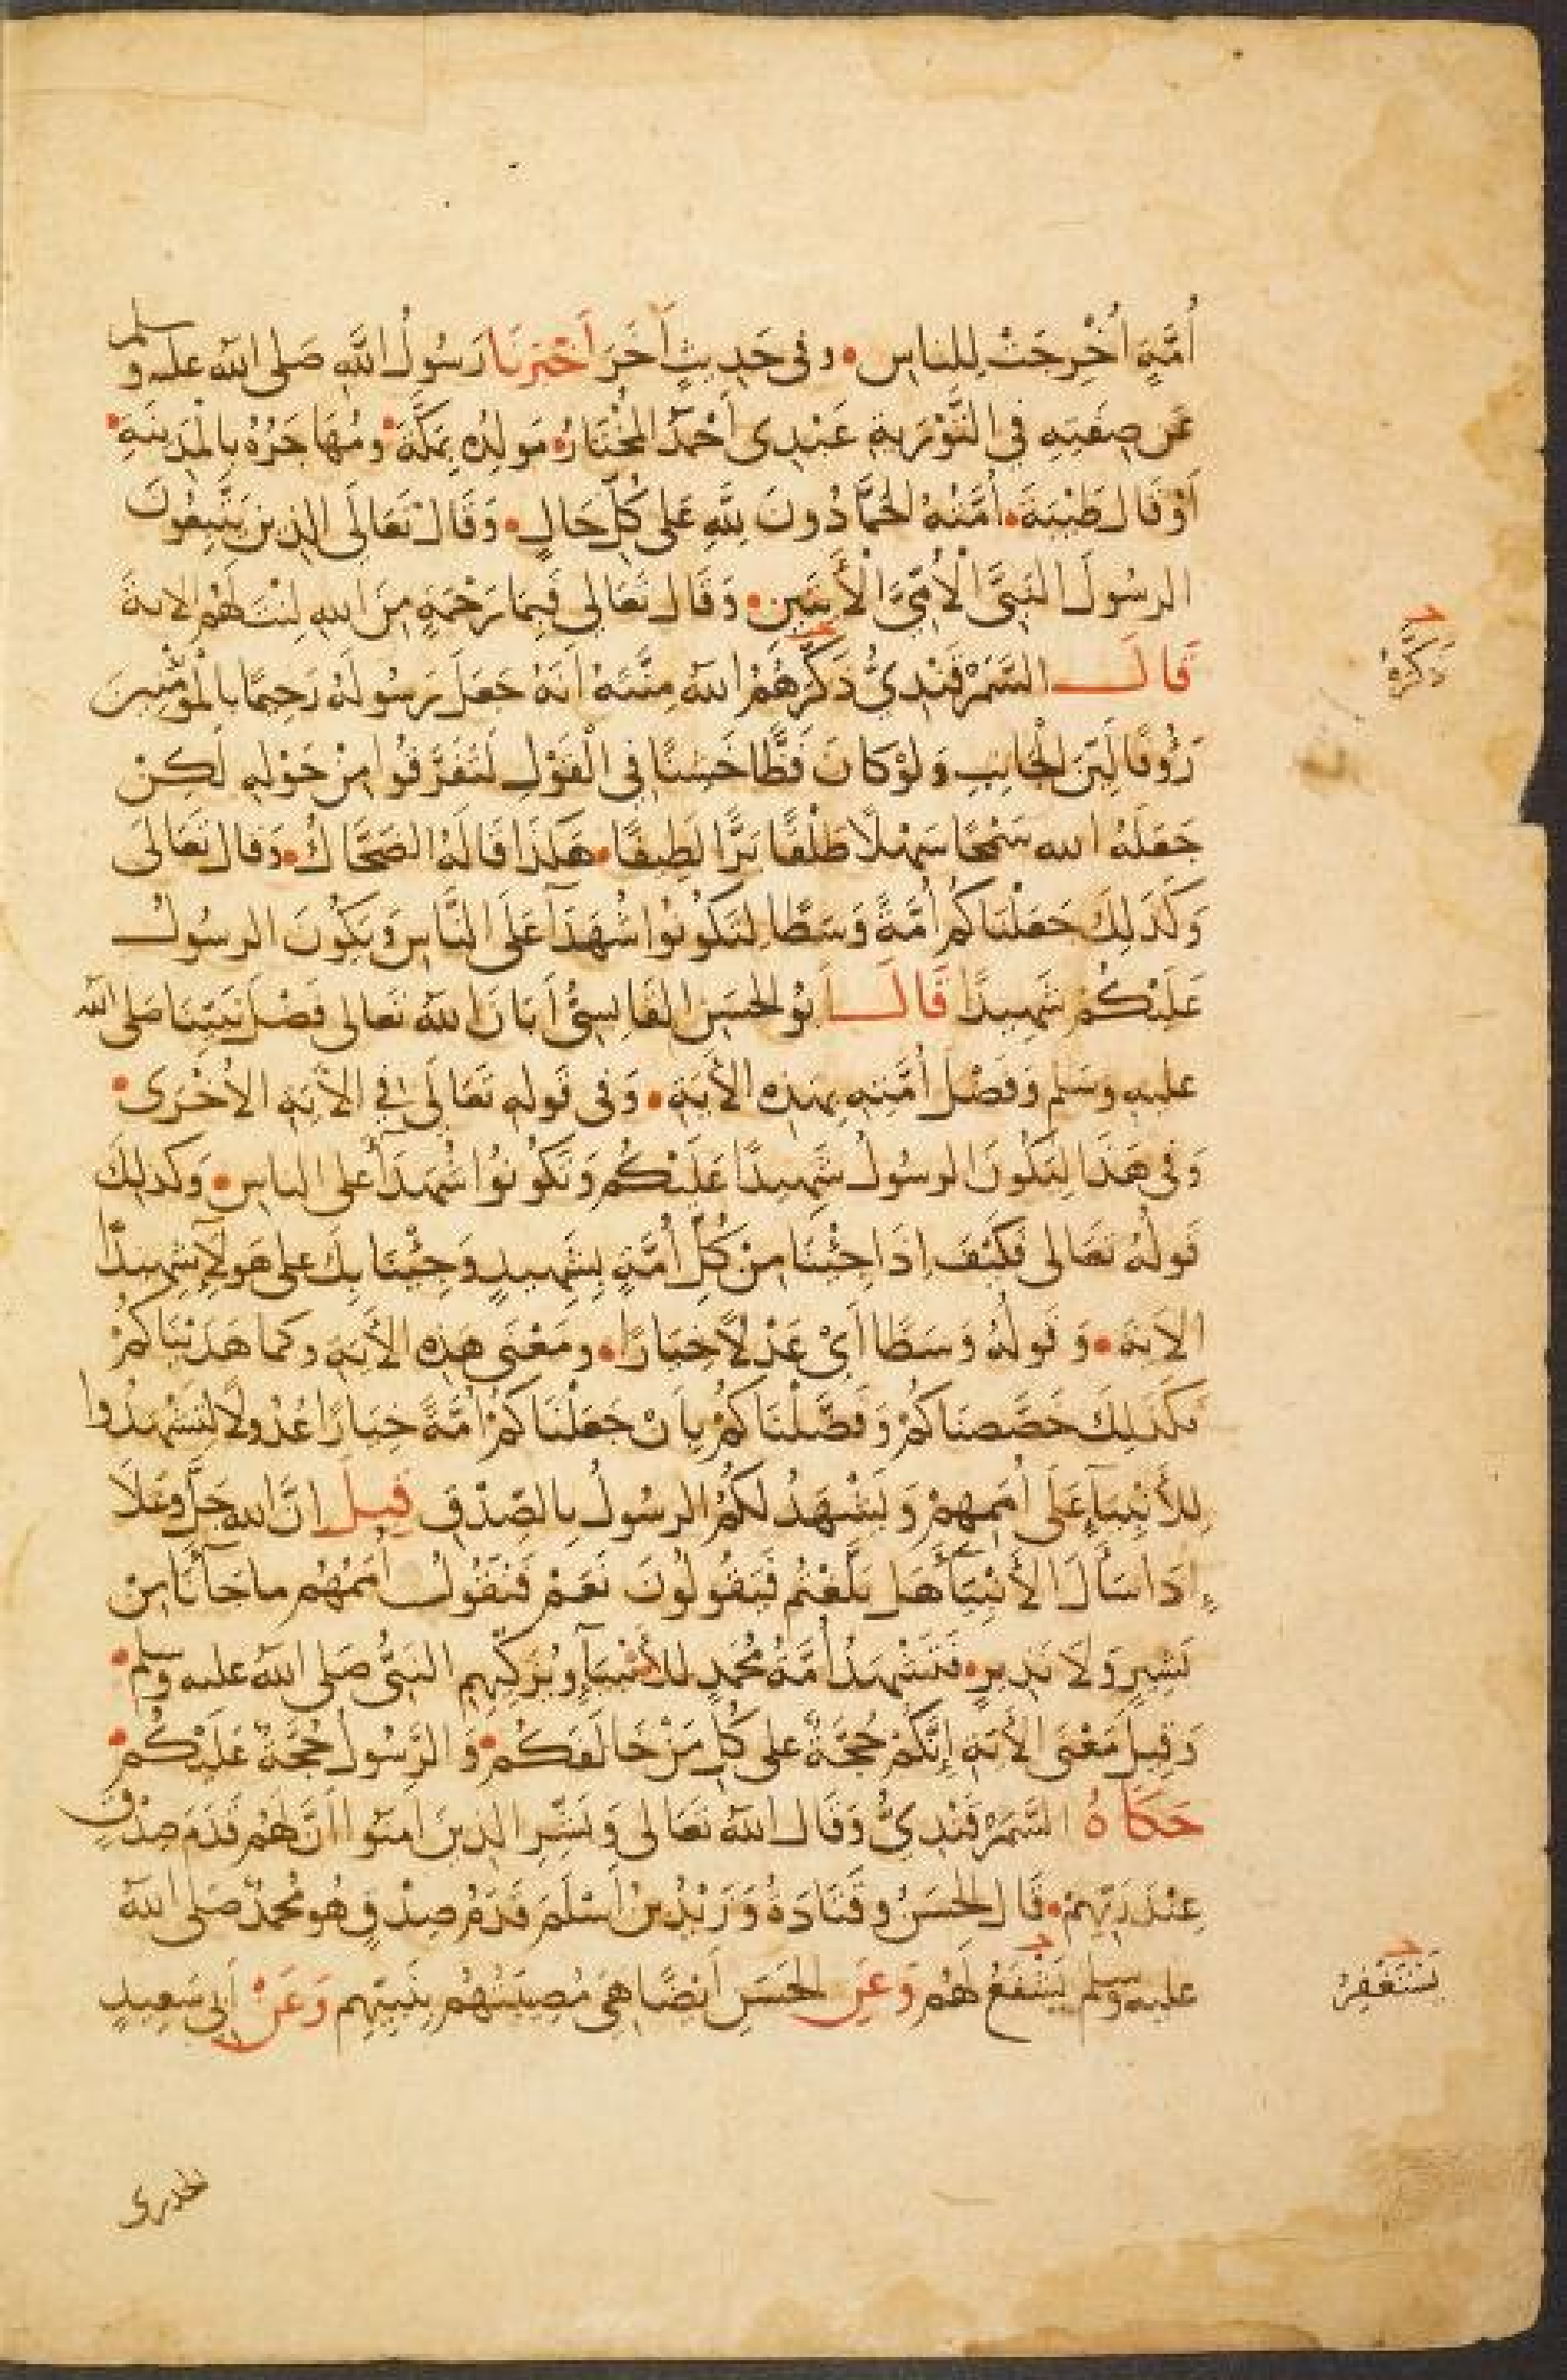 أُمَّةٍ اُخْرِجَتْ لِلناسِ • وفى حَدِيثٍ آخَرَ اَخْبَرَنَا رَسُولُ اللَّهِ صَلى الله عليه وسلم
عَن صِفَتِهِ فِي التَّوْرَيةِ عَبْدِى أَحْمَدُ المُخْتَارُ • مَولِدُه بِمَكَّةَ • ومُهَاجَرُهُ بِالْمَدِينَةِ •
أَوْ قَالَ طَيْبَةَ • أُمَّتُهُ الْحَمَّادُونَ لِلَّهِ عَلى كُلِّ حَالٍ • وَقَالَ تَعَالَى الذِينَ يَتَّبِعُونَ
الرسُولَ النَبِىَّ الْاُمِّىَّ الْأَيَتَيْنِ • وَقَالَ تَعَالى فَبِمَا رَحْمَةٍ مِنَ اللهِ لِنْتَ لَهُمْ الاية
قَالَ السَّمَرْقَنْدِىُّ ذَكَّرَهُمُ الله مِنَّتَهُ اَنَهُ جَعَلَ رَسُولَهُ رَحِيمًا بِالْمُؤْمِنِينَ
رَؤُوفًا لَيِّنَ الْجَانِبِ وَلَوْ كَانَ فَظًّا خَشِنًا فِي الْقَوْلِ لَتَفَرَّقُوا مِنْ حَوْلِهِ لَكِنْ
جَعَلَهُ الله سَمْحًا سَهْلًا طَلْقًا بَرًّا لَطِيفًا • هَكَذَا قَالَهُ الضَحَّاكُ • وَقَالَ تَعَالَى
وَكَذَلِكَ جَعَلْنَاكُمْ اُمَّةً وَسَطًا لِتَكُونُوا شُهَدَآءَ عَلَى النَّاسِ وَيَكُونَ الرسُولُ
عَلَيْكُمْ شَهِيدًا قَالَ اَبُو الحَسَنِ القَابِسِىُّ اَبَانَ اللهُ تَعَالى فَضْلَ نَبِيِّنَا صَلى الله
عليهِ وسَلم وَفَضْلَ اُمَّتِهِ بِهَذِهِ الأَيَةِ • وَفى قَولِهِ تَعَالَى فِي الأَيَةِ الأُخْرَى •
وَفى هَذَا لِيَكُونَ الرسُولُ شَهِيدًا عَلَيْكُمْ وَتَكُونُوا شُهَدَآءَ على الناسِ • وَكَذلِكَ
قَولُهُ تَعَالى فَكَيْفَ اِذَا جِئْنَا مِنْ كُلِّ أُمَّةٍ بِشَهِيدٍ وَجِئْنَا بِكَ على هَولَآءِ شَهِيدًا
الاَيَةَ • وَقَولُهُ وَسَطًا اَىْ عَدْلًا خِيَارًا • ومَعْنَى هَذِهِ الأَيَةِ وكما هَدَيْنَاكُمْ
فَكَذَلِكَ خَصَّصنَاكُمْ وَفَضَّلْنَاكُمْ بِاَنْ جَعَلْنَاكُمْ اُمَّةً خِيَارًا عُدُولًا لِتَشْهَدُوا
لِلأَنْبِيَآءِ عَلَى اُمَمِهِمْ وَيَشْهَدُ لَكُمُ الرسُولُ بِالصِّدْقِ قِيلَ اِنَّ الله جَلَّ وَعَلَا
اِذَا سَأَلَ الأَنْبِيَآءَ هَل بَلَّغْتُم فَيَقُولُونَ نَعَمْ فَتَقُولُ اُمَمُهُم ماجَآءَنَا مِنْ
بَشِيرٍ وَلَا نَذِيرٍ • فَتَشْهَدُ اُمَّةُ مُحَمَدٍ للأَنْبِيَآءِ ويُزَكِّيهِم النَبِىُّ صَلى اللهُ عليه وسلم •
وَقِيلَ مَعْنَى الأَيَةِ إِنَّكُمْ حُجَّةٌ على كُلِّ مَنْ خَالَفَكُمْ • وَالرَّسُولُ حُجَّةٌ عَلَيْكُمْ •
حَكَاهُ السَّمَرْقَنْدِىُّ وَقَالَ اللهُ تَعَالى وَبَشِّرِ الذِينَ اَمَنُوا اَنَّ لَهُمْ قَدَمَ صِدْقٍ
عِنْدَ رَبِّهِمْ • قَالَ الحَسَنُ وقَتَادَةُ وَزَيْدُ بنُ اَسْلَمَ قَدَمُ صِدْقٍ هُو مُحَمَدٌ صَلى اللهُ
عليه وسلم يَشْفَعُ لَهُم وَعَنِ الحَسَنِ اَيْضًا هِىَ مُصِيبَتُهُم بِنَبِيِّهِم وَعَنْ اَبِى سَعِيدٍ
الخدرى